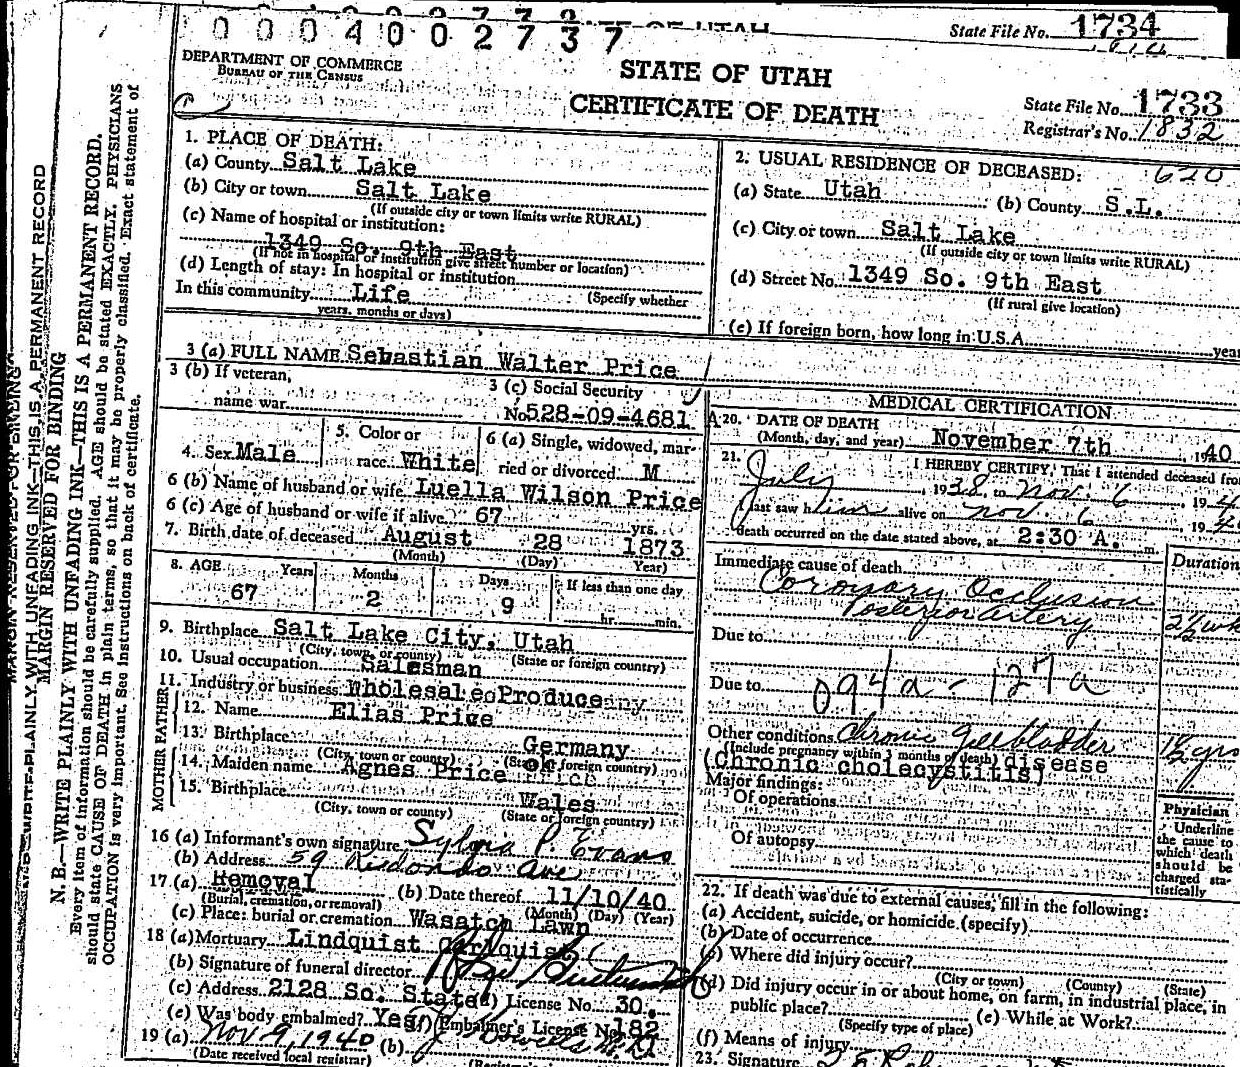 0 0 0 4 0 0 2 7 3 7
State File No. 1734
DEPARTMENT OF COMMERCE
BUREAU OF THE CENSUS
STATE OF UTAH
CERTIFICATE OF DEATH
State File No. 1733
Registrar's No. 1832
MARGIN RESERVED FOR BINDING
N. B.—WRITE PLAINLY WITH UNFADING INK—THIS IS A PERMANENT RECORD.
Every item of information should be carefully supplied. AGE should be stated EXACTLY. PHYSICIANS
should state CAUSE OF DEATH in plain terms, so that it may be properly classified. Exact statement of
OCCUPATION is very important. See instructions on back of certificate.
1. PLACE OF DEATH:
(a) County Salt Lake
(b) City or town Salt Lake
(If outside city or town limits write RURAL)
(c) Name of hospital or institution:
1349 So. 9th East
(If not in hospital or institution give street number or location)
(d) Length of stay: In hospital or institution
In this community Life (Specify whether
years, months or days)
2. USUAL RESIDENCE OF DECEASED: 620
(a) State Utah (b) County S.L.
(c) City or town Salt Lake
(If outside city or town limits write RURAL)
(d) Street No. 1349 So. 9th East
(If rural give location)
(e) If foreign born, how long in U.S.A. year
3 (a) FULL NAME Sebastian Walter Price
3 (b) If veteran,
name war
3 (c) Social Security
No. 528-09-4681 A
4. Sex Male
5. Color or
race White
6 (a) Single, widowed, mar-
ried or divorced M
6 (b) Name of husband or wife Luella Wilson Price
6 (c) Age of husband or wife if alive 67 yrs.
7. Birth date of deceased August 28 1873
(Month) (Day) Year)
8. AGE Years Months Days If less than one day
67 2 9 hr. min.
9. Birthplace Salt Lake City, Utah
(City, town, or county) (State or foreign country)
10. Usual occupation Salesman
11. Industry or business Wholesale Produce
MOTHER FATHER
12. Name Elias Price
13. Birthplace Germany
(City, town or county) (State or foreign country)
14. Maiden name Agnes Price ok
15. Birthplace Wales
(City, town or county) (State or foreign country)
16 (a) Informant's own signature Sylvia P. Evans
(b) Address 59 Redondo Ave
17 (a) Removal (b) Date thereof 11/10/40
(Burial, cremation, or removal) (Month) (Day) (Year)
(c) Place: burial or cremation Wasatch Lawn
18 (a) Mortuary Lindquist
(b) Signature of funeral director
(c) Address 2128 So. State (d) License No. 30.
(e) Was body embalmed? Yes (f) Embalmer's License No. 182
19 (a) Nov 9, 1940 (b)
(Date received local registrar) (Registrar's
MEDICAL CERTIFICATION
20. DATE OF DEATH
(Month, day, and year) November 7th 1940
21. I HEREBY CERTIFY, That I attended deceased from
July 1938, to Nov. 6, 194
I last saw him alive on Nov. 6 1940
death occurred on the date stated above, at 2:30 A. m.
Immediate cause of death Duration
Coronary Occlusion
Posterior Artery 2½ wk
Due to
Due to 094a - 127a
Other conditions Chronic Gallbladder
(Include pregnancy within 3 months of death) disease 1½ yrs
(Chronic cholecystitis)
Major findings:
Of operations
Of autopsy
Physician
Underline
the cause to
which death
should be
charged sta-
tistically
22. If death was due to external causes, fill in the following:
(a) Accident, suicide, or homicide (specify)
(b) Date of occurrence
(c) Where did injury occur?
(City or town) (County) (State)
(d) Did injury occur in or about home, on farm, in industrial place, in
public place? (e) While at Work?
(Specify type of place)
(f) Means of injury
23. Signature